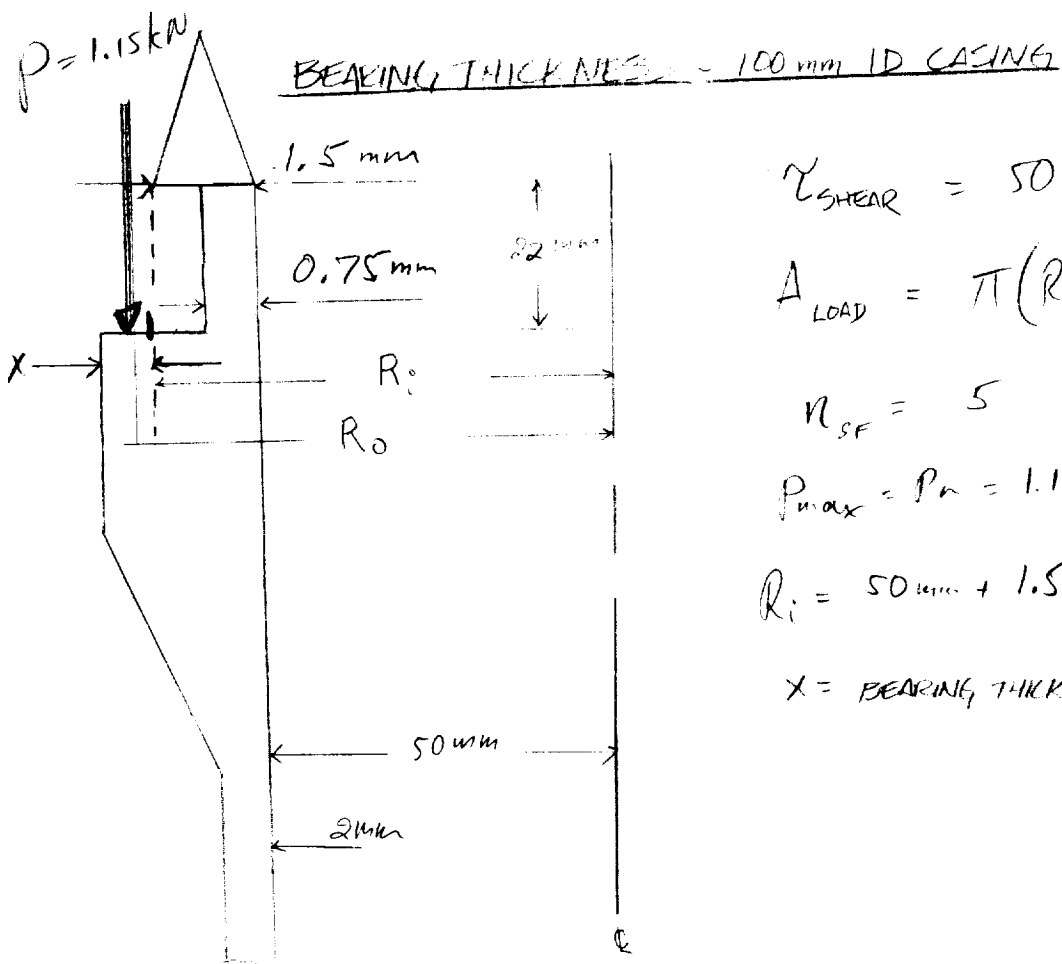 P = 1.15kN
BEARING THICKNESS - 100 mm ID CASING
1.5 mm
22 mm
0.75mm
X
R_i
R_o
50 mm
2mm
℄
τ_SHEAR = 50
A_LOAD = π(R
n_SF = 5
P_max = Pn = 1.1
R_i = 50 mm + 1.5
X = BEARING THICK